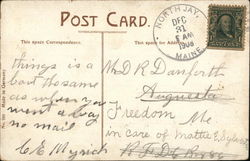 POST CARD.
This space Correspondence.
This space for Address
NORTH JAY,
DEC
31
AM
1908
MAINE
things is a
bout the same
as when you
went away
no mail
C E Myrick
Mr D R Danforth
Augusta
Freedom Me
in care of Mattie E
R.F.D.
Made in Germany